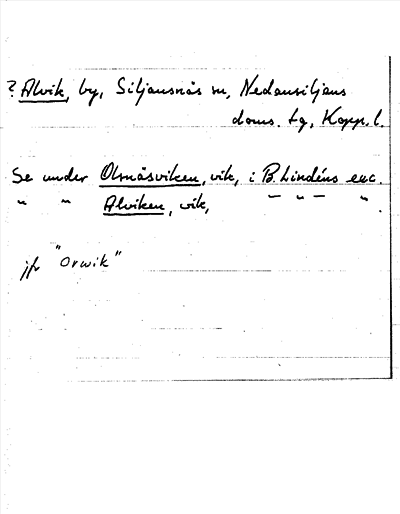 ? Alvik, by, Siljansnäs sn, Nedansiljans
doms. tg, Kopp. l.
Se under Olnäsviken, vik, i B. Lindéns exc.
" " Alviken, vik, — " — " .
jfr "Orwik"